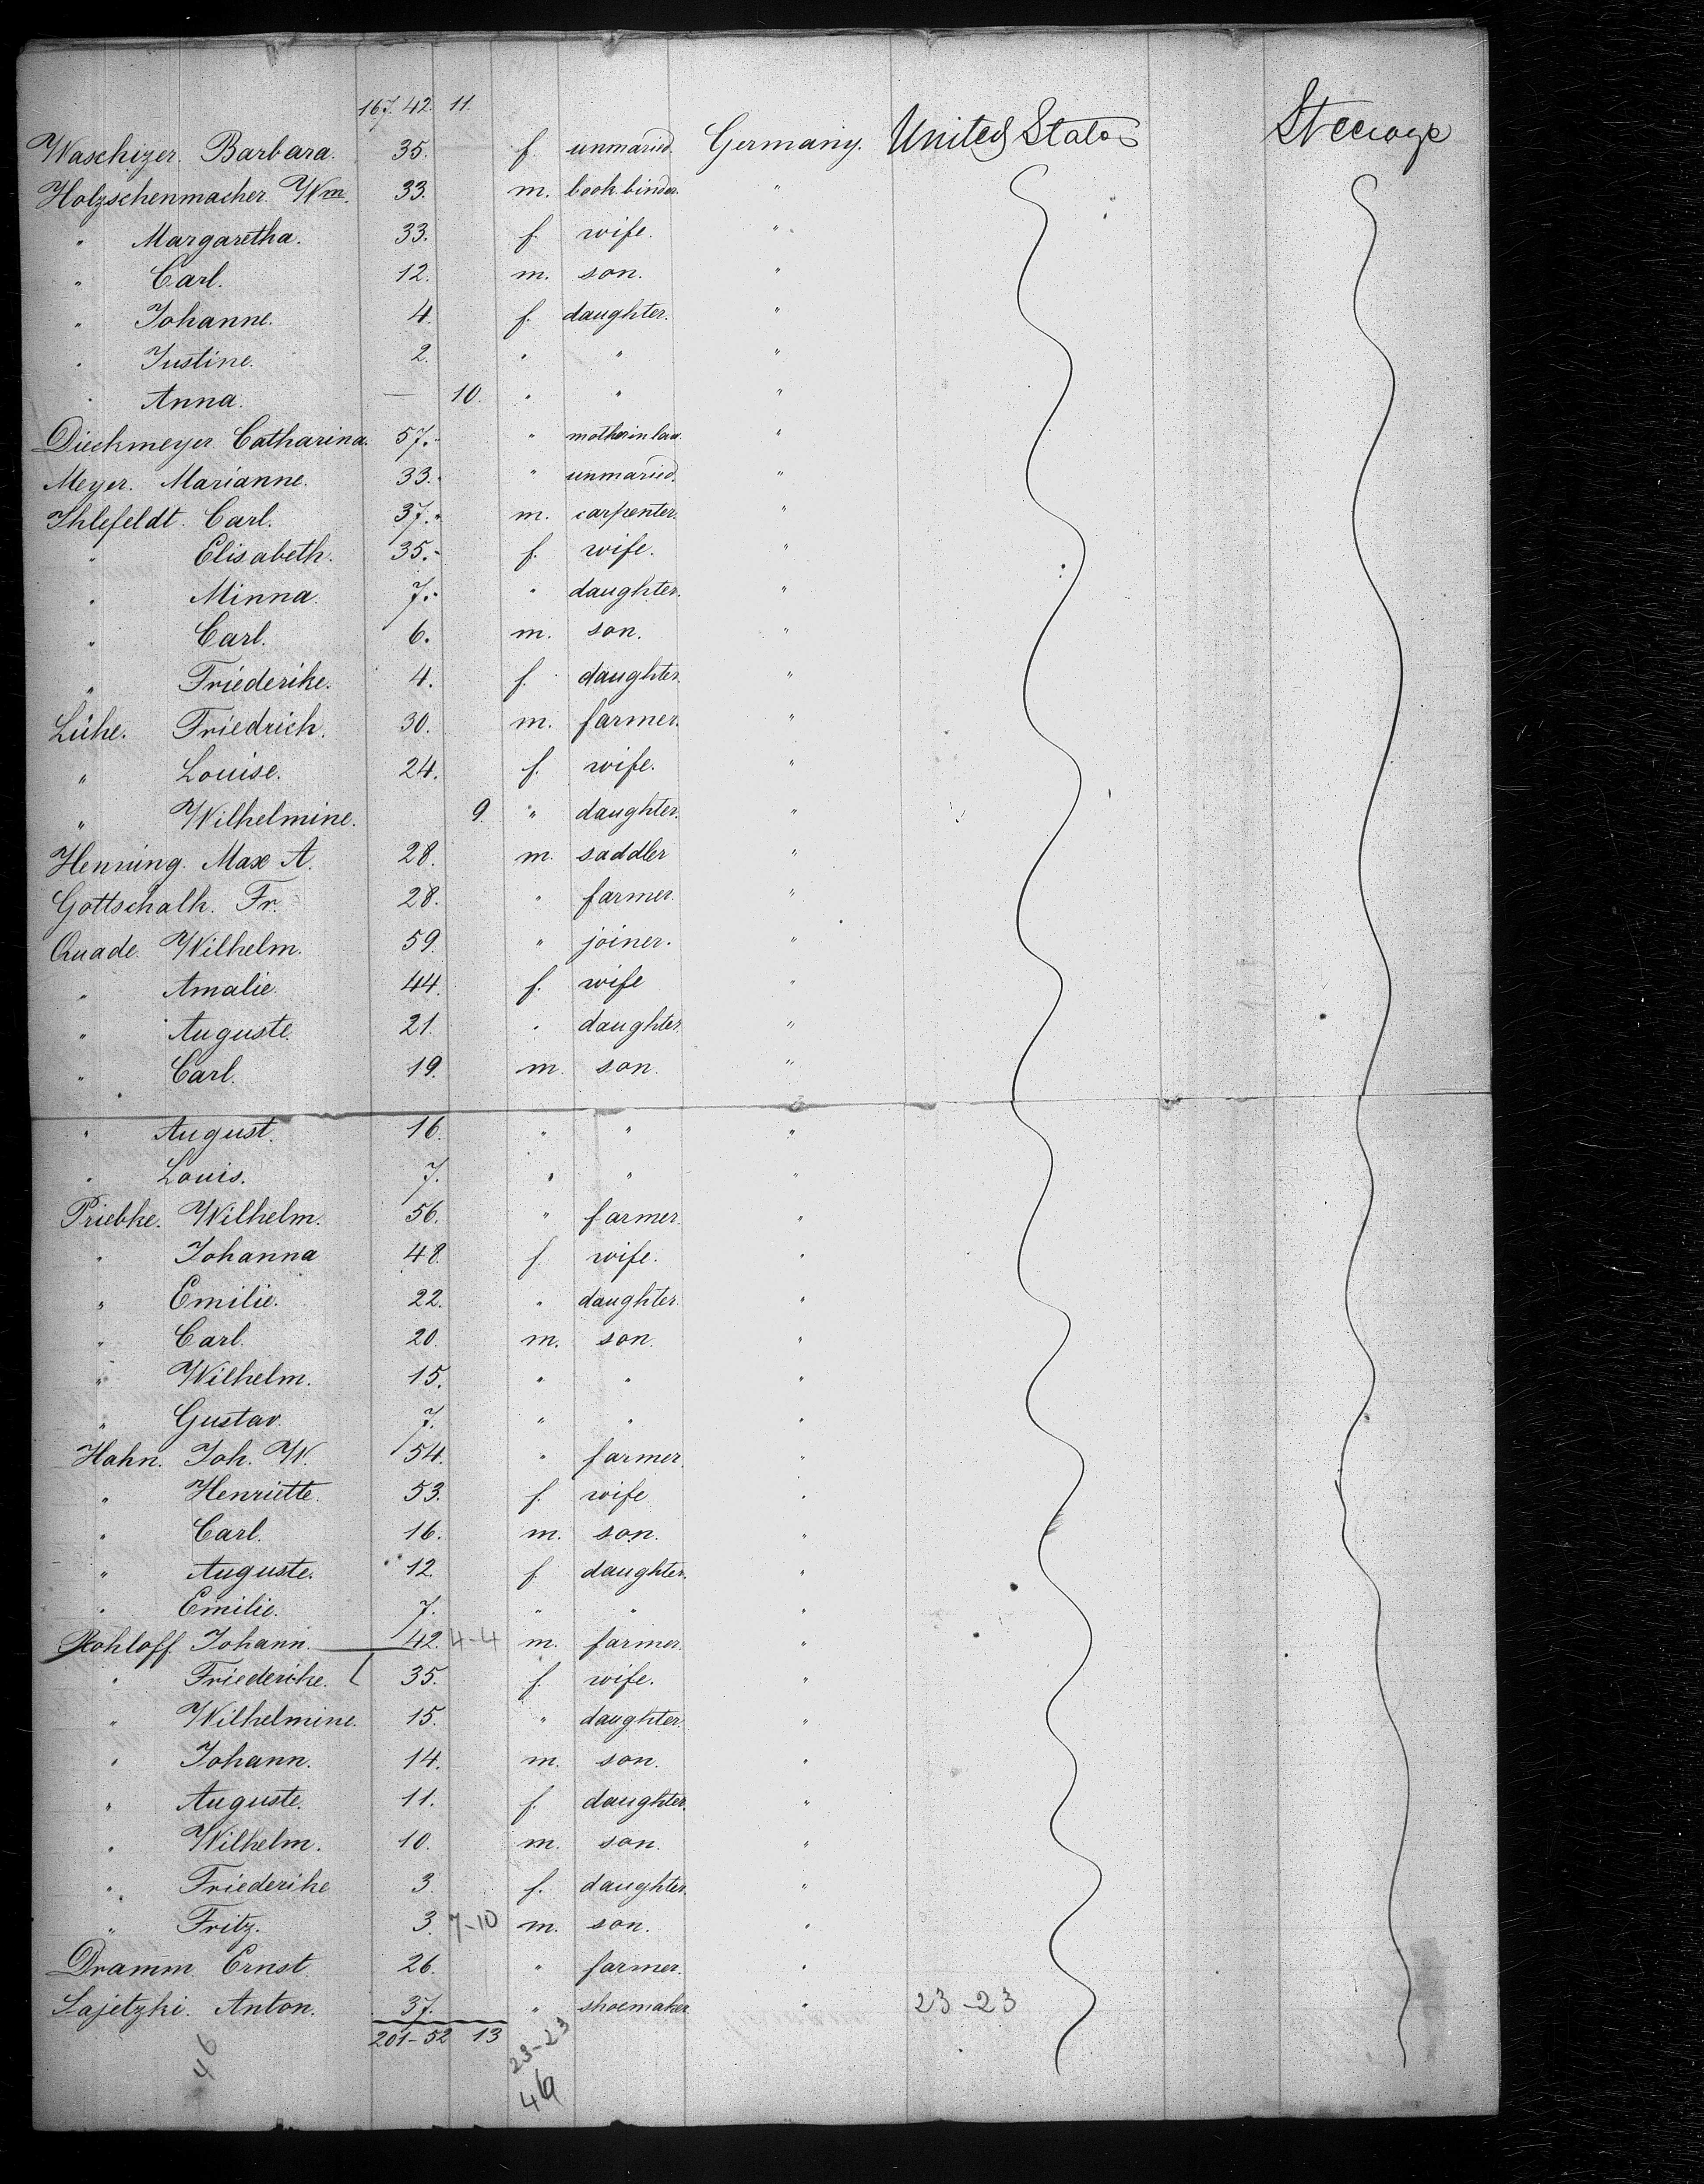 167. 42. 11.
Waschizer. Barbara. 35. f. unmaried. Germany. United States Steerage
Holzschenmacher. Wm. 33. m. book binder. "
" Margaretha. 33. f. wife. "
" Carl. 12. m. son. "
" Johanne. 4. f. daughter. "
" Justine. 2. " " "
" Anna. — 10. " " "
Dieckmeyer. Catharina. 57. " mother in law. "
Meyer. Marianne. 33. " unmaried. "
Ihlefeldt. Carl. 37. m. carpenter. "
" Elisabeth. 35. f. wife. "
" Minna. 7. " daughter. "
" Carl. 6. m. son. "
" Friederike. 4. f. daughter. "
Lühe. Friedrich. 30. m. farmer. "
" Louise. 24. f. wife. "
" Wilhelmine. 9. " daughter. "
Henning. Max A. 28. m. saddler "
Gottschalk. Fr. 28. " farmer. "
Quade. Wilhelm. 59. " joiner. "
" Amalie. 44. f. wife "
" Auguste. 21. " daughter. "
" Carl. 19. m. son. "
" August. 16. " " "
" Louis. 7. " " "
Priebke. Wilhelm. 56. " farmer. "
" Johanna 48. f. wife. "
" Emilie. 22. " daughter. "
" Carl. 20. m. son. "
" Wilhelm. 15. " " "
" Gustav. 7. " " "
Hahn. Joh. W. 54. " farmer. "
" Henriette. 53. f. wife "
" Carl. 16. m. son. "
" Auguste. 12. f. daughter. "
" Emilie. 7. " " "
Rohloff. Johann. 42. 4-4 m. farmer. "
" Friederike. 35. f. wife. "
" Wilhelmine. 15. " daughter. "
" Johann. 14. m. son. "
" Auguste. 11. f. daughter. "
" Wilhelm. 10. m. son. "
" Friederike 3. f. daughter. "
" Fritz. 3. 7-10 m. son. "
Dramm. Ernst. 26. " farmer. "
Lajetzki. Anton. 37. " shoemaker. " 23-23
201-52 13
23-23
46
46